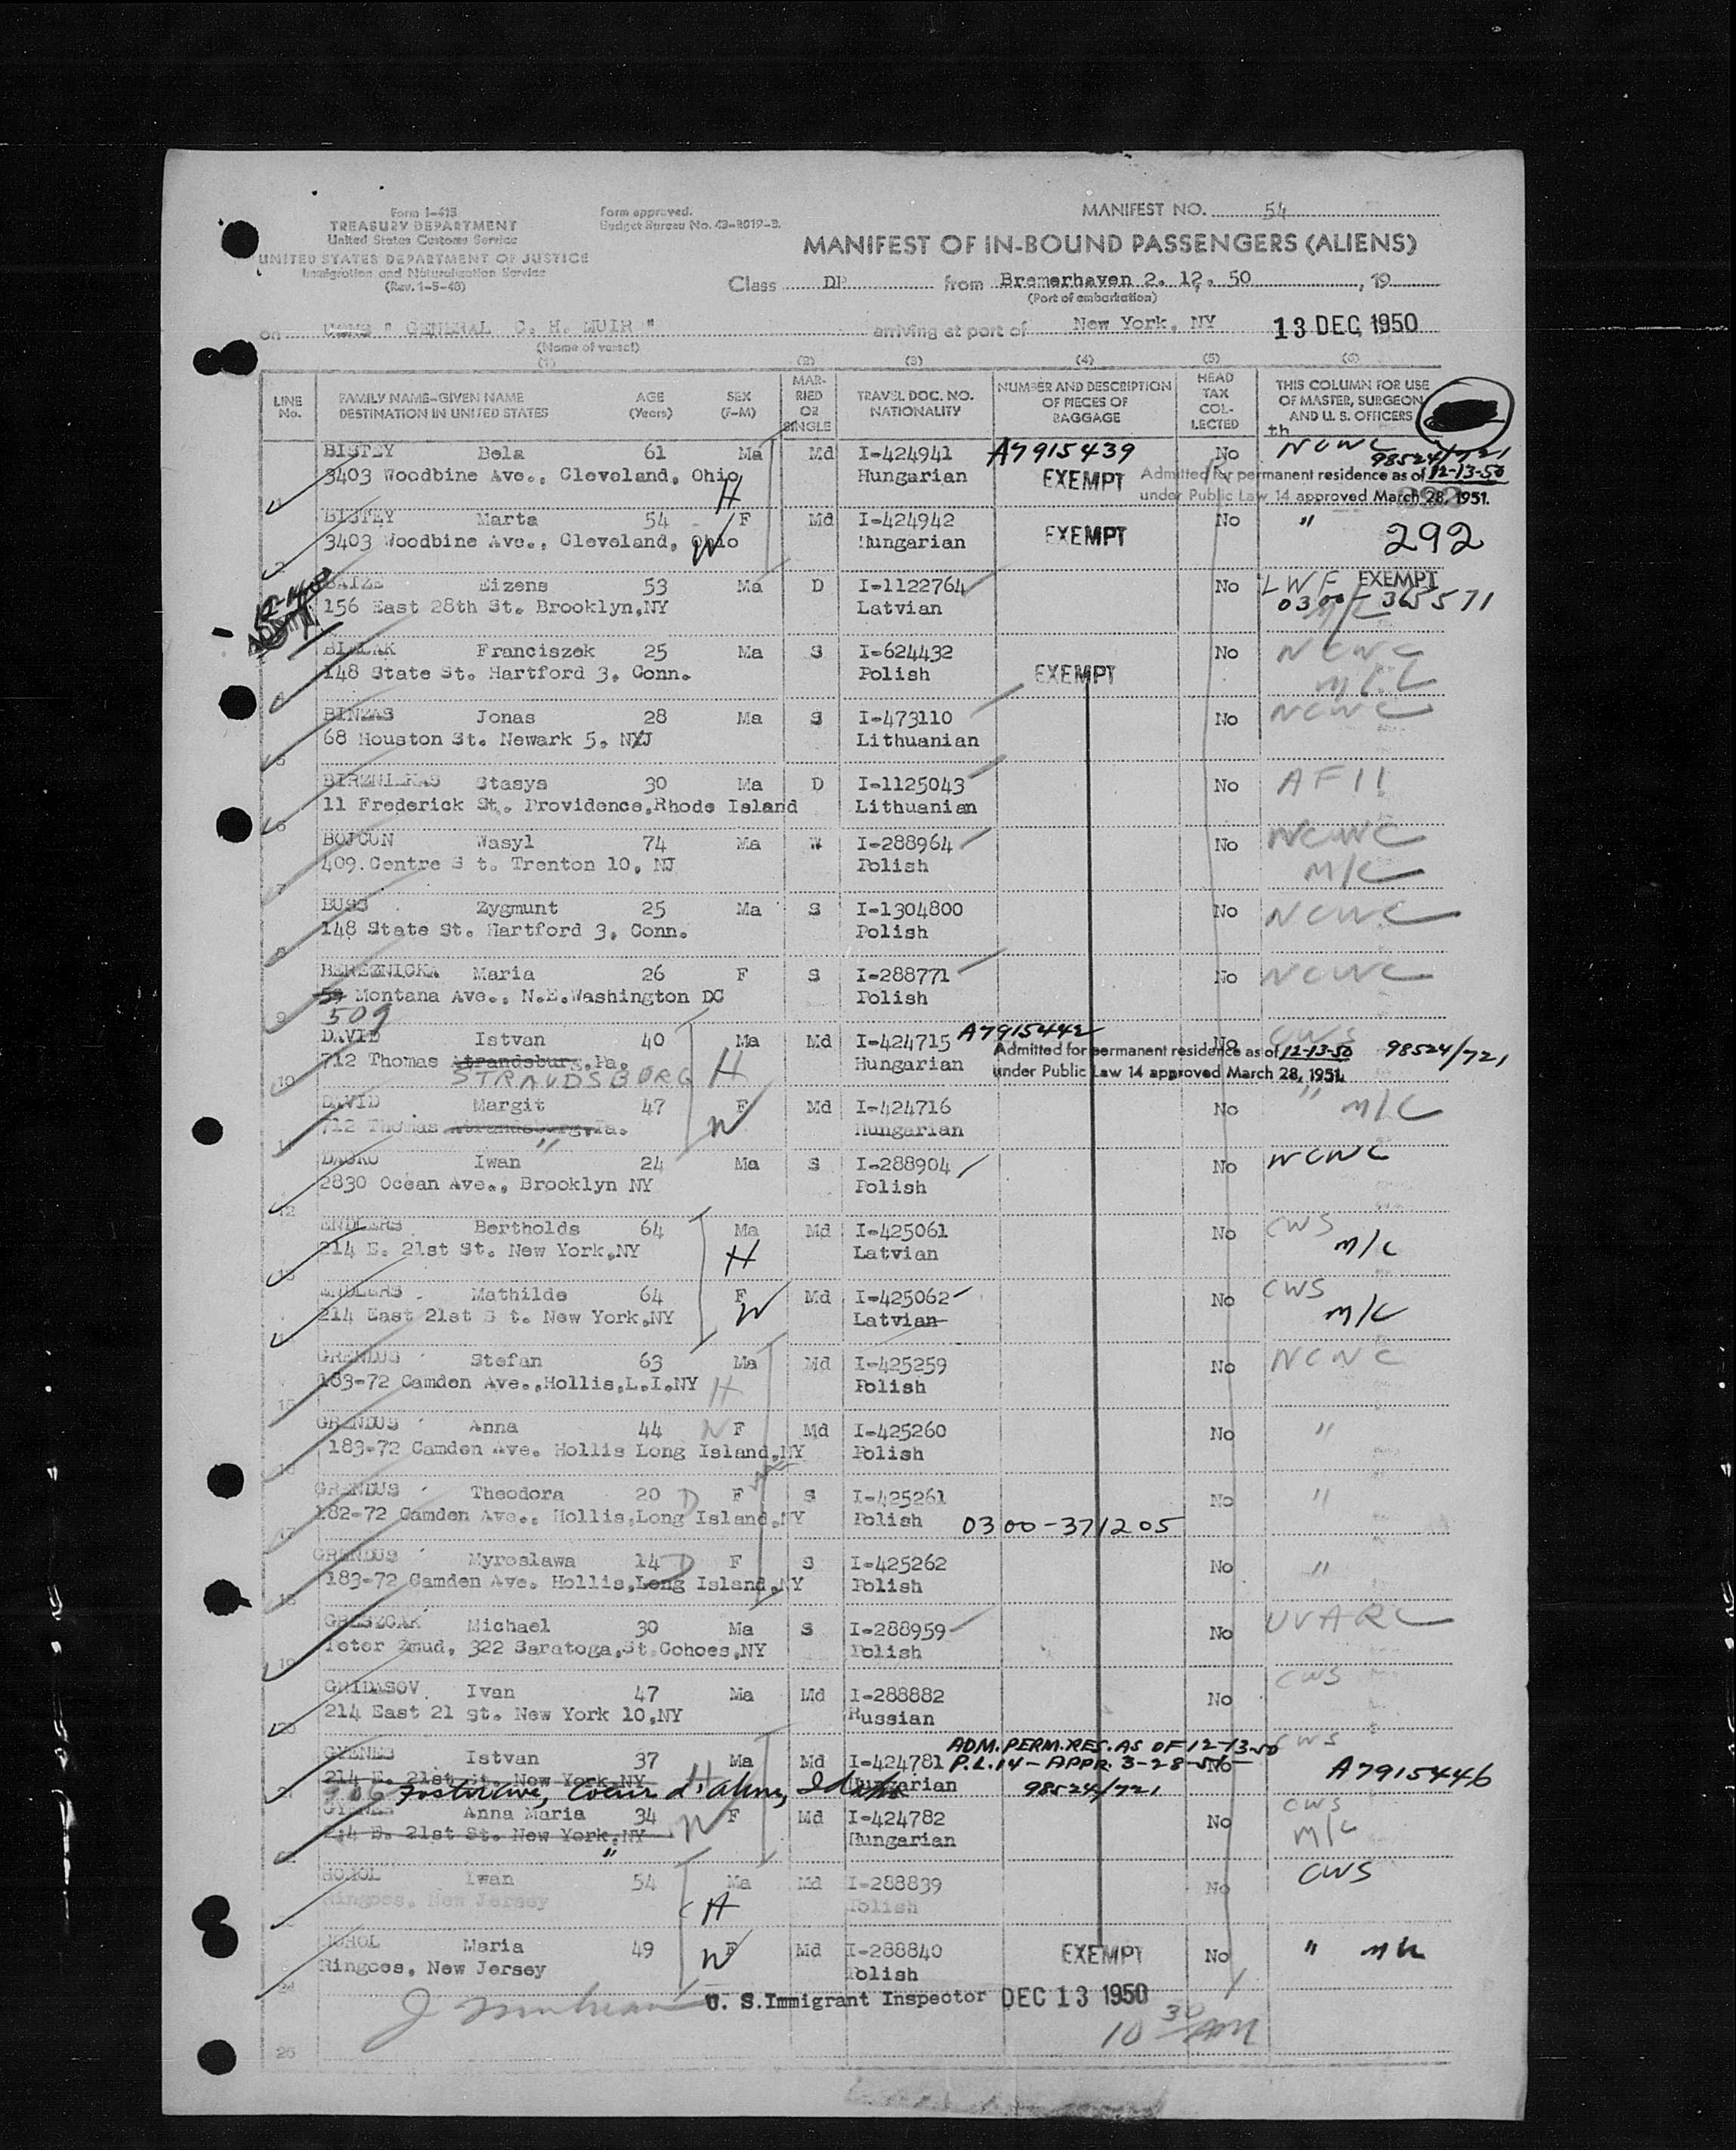 Form I-415
TREASURY DEPARTMENT
United States Customs Service
UNITED STATES DEPARTMENT OF JUSTICE
Immigration and Naturalization Service
(Rev. 1-5-48)
Form approved.
Budget Bureau No. 43-R019-3.
MANIFEST NO. 54
MANIFEST OF IN-BOUND PASSENGERS (ALIENS)
Class DP from Bremerhaven 2. 12. 50, 19
(Port of embarkation)
on USNS " GENERAL C. H. MUIR " arriving at port of New York, NY 13 DEC 1950
(Name of vessel)
(1) (2) (3) (4) (5) (6)
LINE No. FAMILY NAME-GIVEN NAME DESTINATION IN UNITED STATES AGE (Years) SEX (F-M) MARRIED OR SINGLE TRAVEL DOC. NO. NATIONALITY NUMBER AND DESCRIPTION OF PIECES OF BAGGAGE HEAD TAX COLLECTED THIS COLUMN FOR USE OF MASTER, SURGEON, AND U. S. OFFICERS
th
BISTEY Bela 61 Ma Md I-424941 A7915439 No NCWC 98524/721
3403 Woodbine Ave., Cleveland, Ohio H Hungarian EXEMPT Admitted for permanent residence as of 12-13-50
under Public Law 14 approved March 28, 1951.
BISTEY Marta 54 F Md I-424942 No "
3403 Woodbine Ave., Cleveland, Ohio W Hungarian EXEMPT 292
2
BAIZE Eizens 53 Ma D I-1122764 No LWF EXEMPT
156 East 28th St. Brooklyn,NY Latvian 0300-365571
M/C
BIELAK Franciszek 25 Ma S I-624432 No NCWC
148 State St. Hartford 3, Conn. Polish EXEMPT
4
BINZAS Jonas 28 Ma S I-473110 No NCWC
68 Houston St. Newark 5, NJ Lithuanian
5
Stasys 30 Ma D I-1125043 No AFII
11 Frederick St. Providence,Rhode Island Lithuanian
6
BOJCUN Wasyl 74 Ma W I-288964 No NCWC
409.Centre S t. Trenton 10, NJ Polish M/C
7
BUSS Zygmunt 25 Ma S I-1304800 No NCWC
148 State St. Hartford 3, Conn. Polish
8
BEREZNICKA Maria 26 F S I-288771 No NCWC
59 Montana Ave., N.E.Washington DC Polish
9 509
DAVID Istvan 40 Ma Md I-424715 A7915442 No CWS
712 Thomas Strandsburg,Pa. H Hungarian Admitted for permanent residence as of 12-13-50 98524/721
10 STRAUDSBURG under Public Law 14 approved March 28, 1951.
DAVID Margit 47 F Md I-424716 No " M/C
712 Thomas Strandsburg,Pa. W Hungarian
11 "
Iwan 24 Ma S I-288904 No NCWC
2830 Ocean Ave., Brooklyn NY Polish
12
ENDLERS Bertholds 64 Ma Md I-425061 No CWS
214 E. 21st St. New York,NY H Latvian M/C
13
ENDLERS Mathilde 64 F Md I-425062 No CWS
214 East 21st S t. New York,NY W Latvian M/C
GRENDUS Stefan 63 Ma Md I-425259 No NCWC
183-72 Camden Ave.,Hollis,L.I.NY H Polish
15
GRENDUS Anna 44 W F Md I-425260 No "
183-72 Camden Ave. Hollis Long Island,NY Polish
16
GRENDUS Theodora 20 D F S I-425261 No "
182-72 Camden Ave., Hollis,Long Island,NY Polish 0300-371205
17
GRENDUS Myroslawa 14 D F S I-425262 No "
183-72 Camden Ave. Hollis,Long Island,NY Polish
18
GRESZCAK Michael 30 Ma S I-288959 No UUARC
Peter Zmud, 322 Saratoga,St.Cohoes,NY Polish
19
GRIDASOV Ivan 47 Ma Md I-288882 No CWS
214 East 21 st. New York 10,NY Russian
20
GYENES Istvan 37 Ma Md I-424781 ADM. PERM. RES. AS OF 12-13-50 CWS
214 E. 21st St. New York,NY H Hungarian P.L.14 - APPR. 3-28-51 No A7915446
Foster Ave, Coeur d'Alene, Idaho 98524/721
GYENES Anna Maria 34 W F Md I-424782 No CWS
214 E. 21st St. New York,NY Hungarian M/C
"
HOHOL Iwan 54 Ma Md I-288839 No CWS
Ringoes, New Jersey H Polish
HOHOL Maria 49 F Md I-288840 EXEMPT No " M/C
Ringoes, New Jersey W Polish
24
U. S. Immigrant Inspector DEC 13 1950
10 30 AM
25